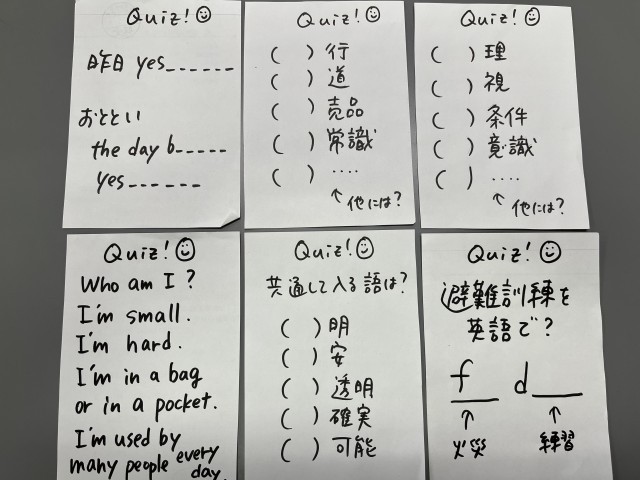 Quiz!
昨日 yes______
おととい
the day b_____
yes______
Quiz!
( ) 行
( ) 道
( ) 売品
( ) 常識
( ) ‥‥
↑他には?
Quiz!
( ) 理
( ) 視
( ) 条件
( ) 意識
( ) ‥‥
↑他には?
Quiz!
Who am I?
I'm small.
I'm hard.
I'm in a bag
or in a pocket.
I'm used by
many people every
day.
Quiz!
共通して入る語は?
( ) 明
( ) 安
( ) 透明
( ) 確実
( ) 可能
Quiz!
避難訓練を
英語で?
f d___
↑ ↑
火災 練習